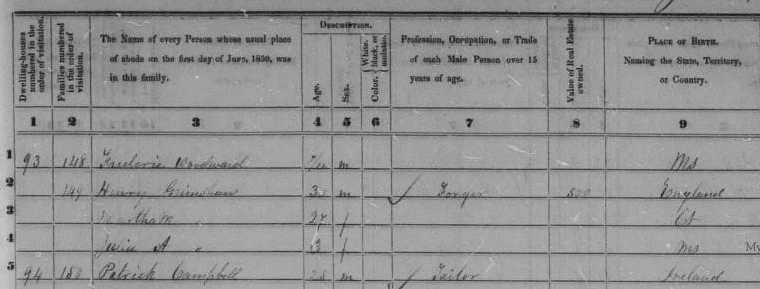 DESCRIPTION.
Dwelling-houses numbered in the order of visitation.
Families numbered in the order of visitation.
The Name of every Person whose usual place of abode on the first day of June, 1850, was in this family.
Age.
Sex.
Color, White, black, or mulatto.
Profession, Occupation, or Trade of each Male Person over 15 years of age.
Value of Real Estate owned.
PLACE OF BIRTH. Naming the State, Territory, or Country.
1 2 3 4 5 6 7 8 9
1 93 148 Frederic Woodward m Ms
2 149 Henry Grimshaw m Forger 500 England
3 Martha 27 f Ct
4 A " 3 f Ms My
5 94 150 Patrick Campbell 28 m Tailor Ireland